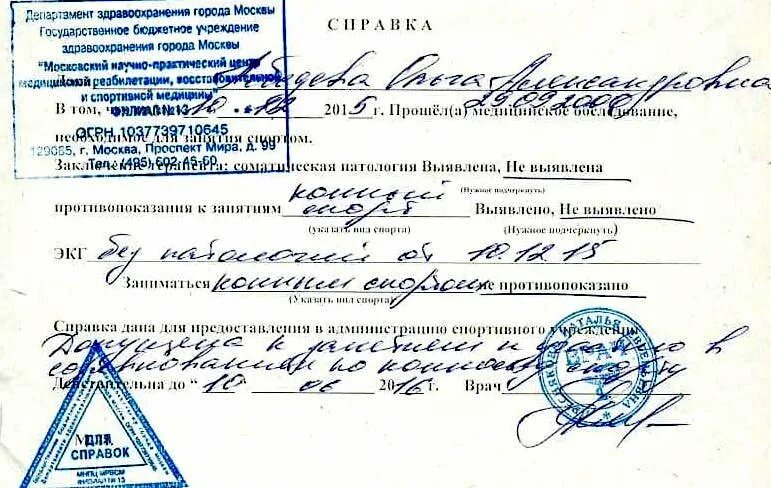 Департамент здравоохранения города Москвы
Государственное бюджетное учреждение
здравоохранения города Москвы
"Московский научно-практический центр
медицинской реабилитации, восстановительной
и спортивной медицины"
ФИЛИАЛ № 13
ОГРН 1037739710645
129085, г. Москва, Проспект Мира, д. 99
Тел. (495) 602-45-60
СПРАВКА
Лебедева Ольга Александровна
29.09.2000
В том, что 10 12 2015 г. Прошёл(а) медицинское обследование,
необходимое для занятия спортом.
Заключение терапевта: соматическая патология Выявлена, Не выявлена
(Нужное подчеркнуть)
противопоказания к занятиям конный спорт Выявлено, Не выявлено
(указать вид спорта) (Нужное подчеркнуть)
ЭКГ без патологий от 10.12.15
Заниматься конным спортом не противопоказано
(Указать вид спорта)
Справка дана для предоставления в администрацию спортивного учреждения
Допущена к занятиям и участию в
соревнованиях по конному спорту
Действительна до "10 06 2016 г. Врач
ВРАЧ
НАТАЛЬЯ
М.П.
ДЛЯ
СПРАВОК
МНПЦ МРВСМ
ФИЛИАЛ № 13